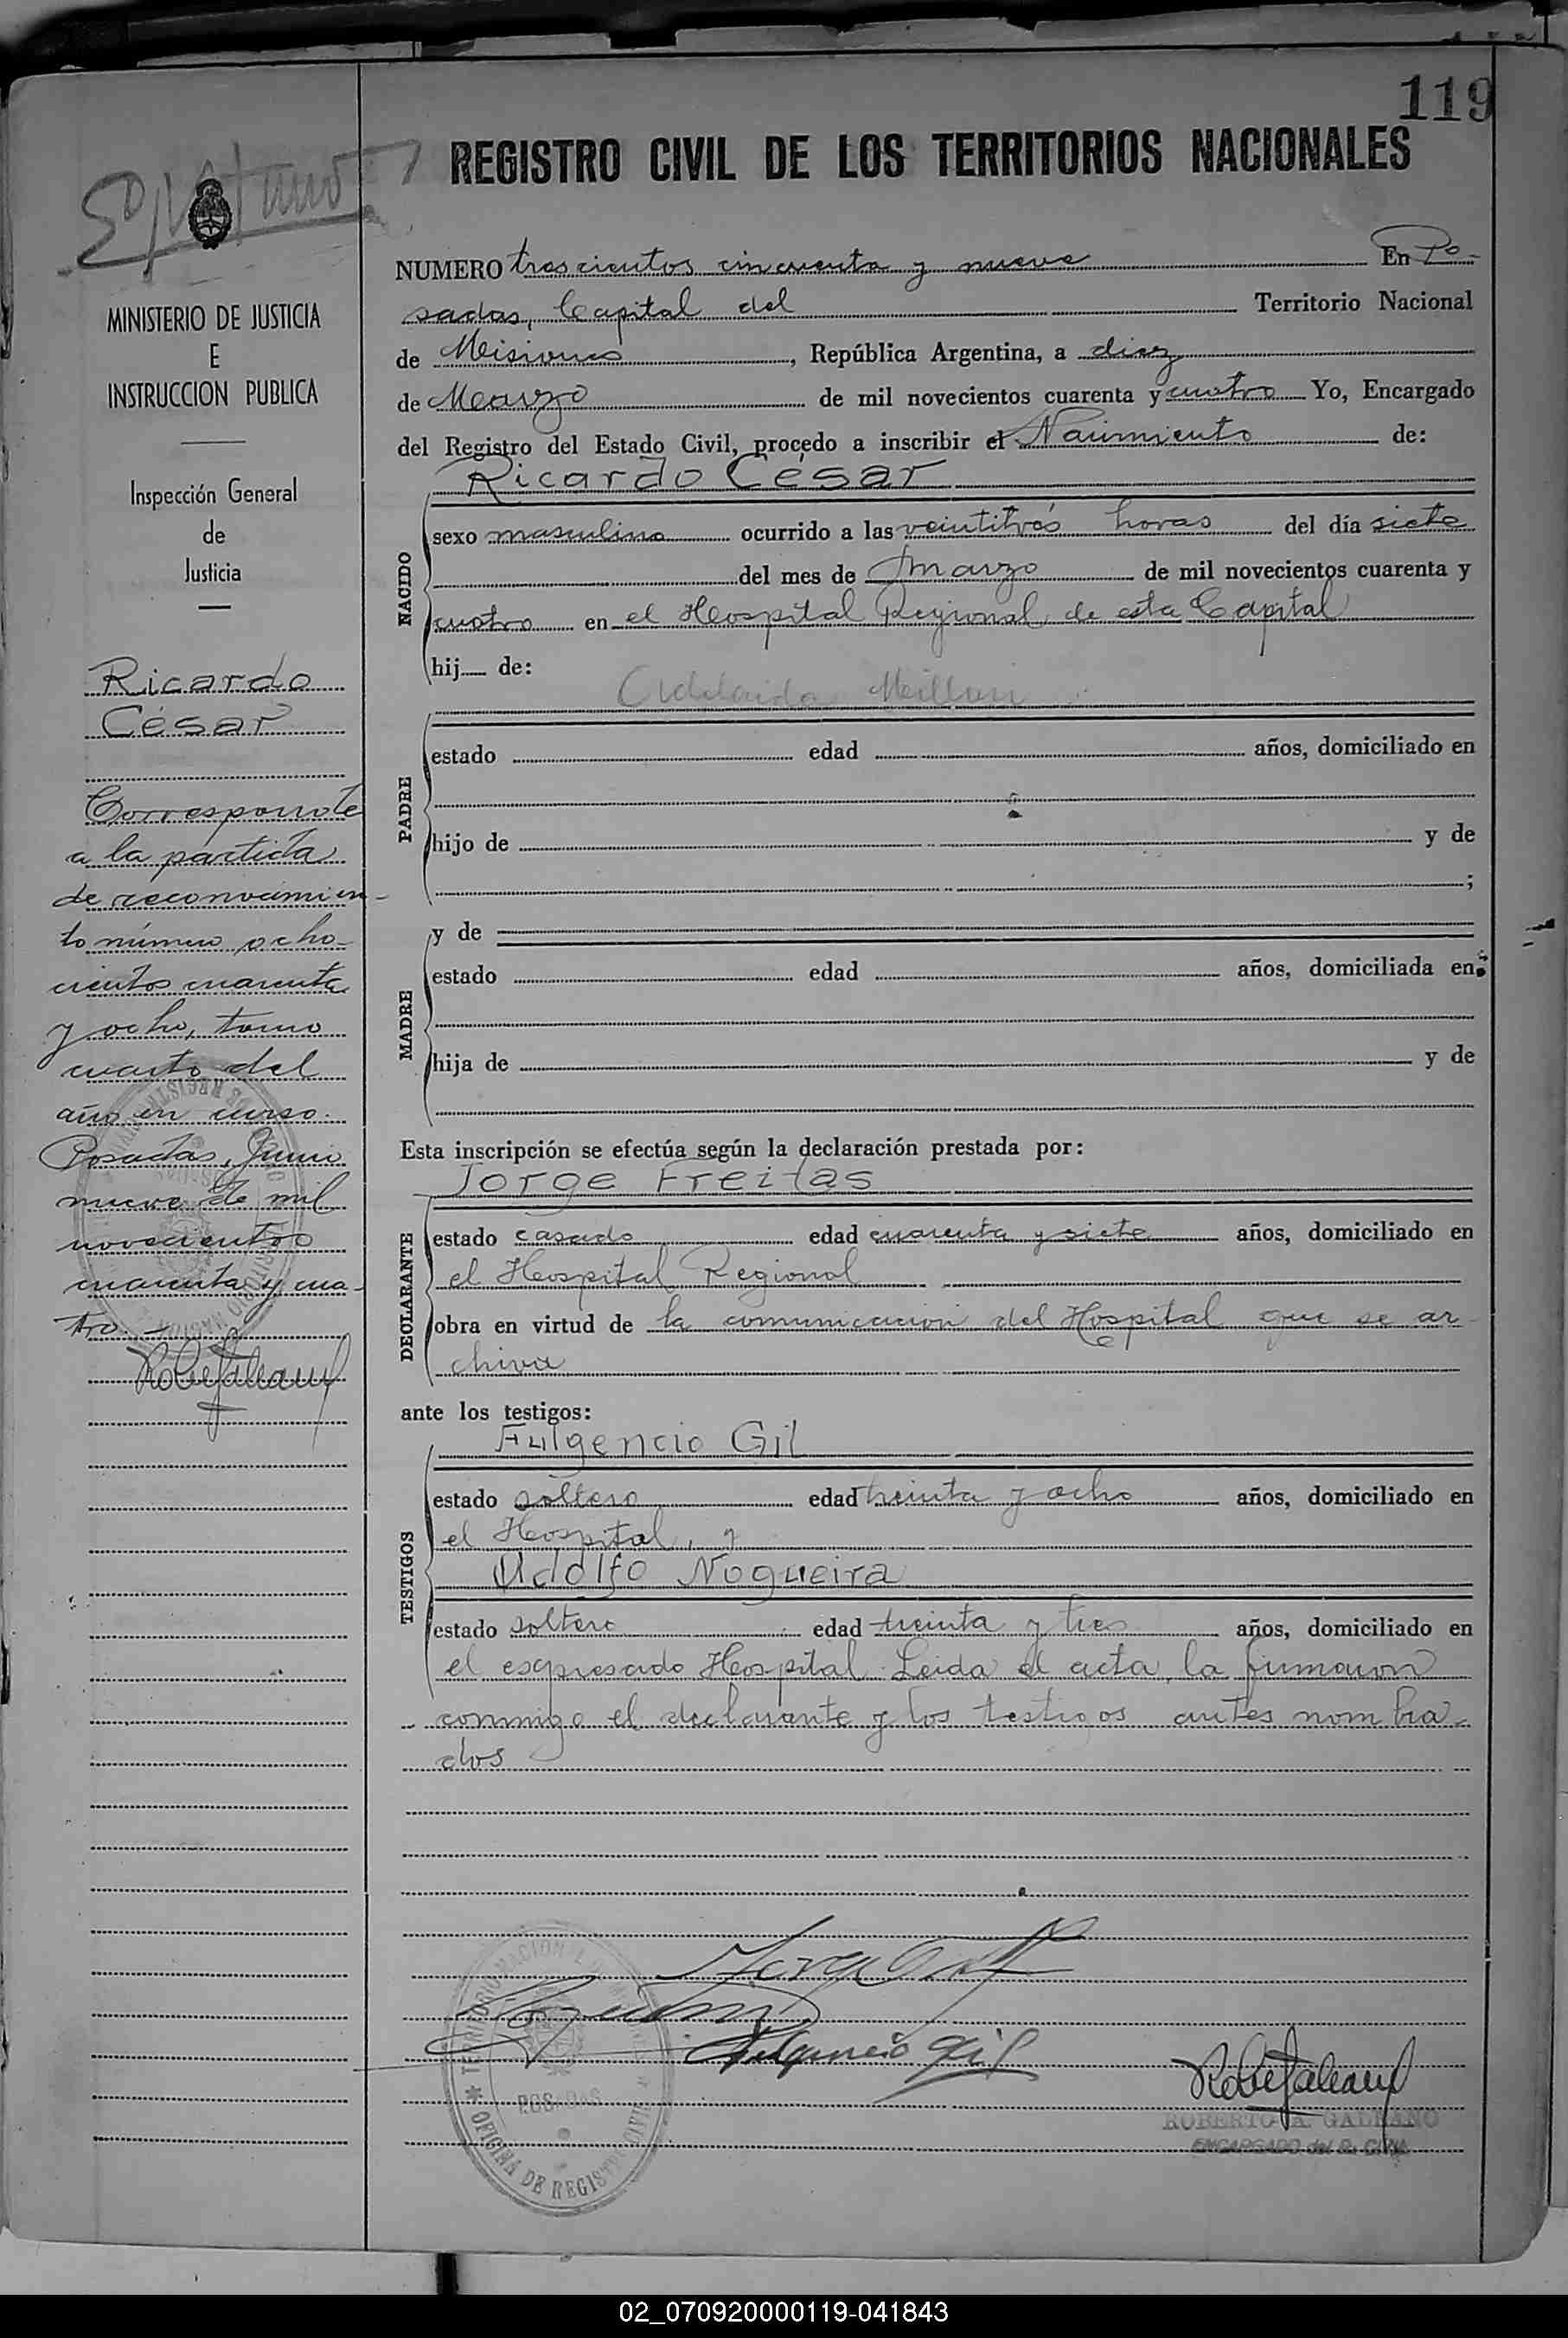 119
REGISTRO CIVIL DE LOS TERRITORIOS NACIONALES
MINISTERIO DE JUSTICIA
E
INSTRUCCION PUBLICA
Inspección General
de
Justicia
Ricardo
César
Corresponde
a la partida
de reconocimien-
to número ocho-
cientos cuarenta
y ocho, tomo
cuarto del
año en curso.
Posadas, Junio
nueve de mil
novecientos
cuarenta y cua-
tro.
NUMERO trescientos cincuenta y nueve En Po-
sadas, Capital del Territorio Nacional
de Misiones, República Argentina, a diez
de Marzo de mil novecientos cuarenta y cuatro Yo, Encargado
del Registro del Estado Civil, procedo a inscribir el Nacimiento de:
Ricardo César
NACIDO
sexo masculino ocurrido a las veintitrés horas del día siete
del mes de marzo de mil novecientos cuarenta y
cuatro en el Hospital Regional de esta Capital
hij de:
Adelaida
PADRE
estado edad años, domiciliado en
hijo de y de
;
MADRE
y de
estado edad años, domiciliada en
hija de y de
Esta inscripción se efectúa según la declaración prestada por:
Jorge Freitas
DECLARANTE
estado casado edad cuarenta y siete años, domiciliado en
el Hospital Regional
obra en virtud de la comunicación del Hospital que se ar-
chiva
ante los testigos:
Fulgencio Gil
TESTIGOS
estado soltero edad treinta y ocho años, domiciliado en
el Hospital, y
Adolfo Nogueira
estado soltero edad treinta y tres años, domiciliado en
el expresado Hospital. Leida el acta, la firmaron
conmigo el declarante y los testigos antes nombra-
dos
Fulgencio Gil
POSADAS
OFICINA DE REGISTRO CIVIL
ROBERTO A. GALEANO
ENCARGADO del R. CIVIL
02_070920000119-041843